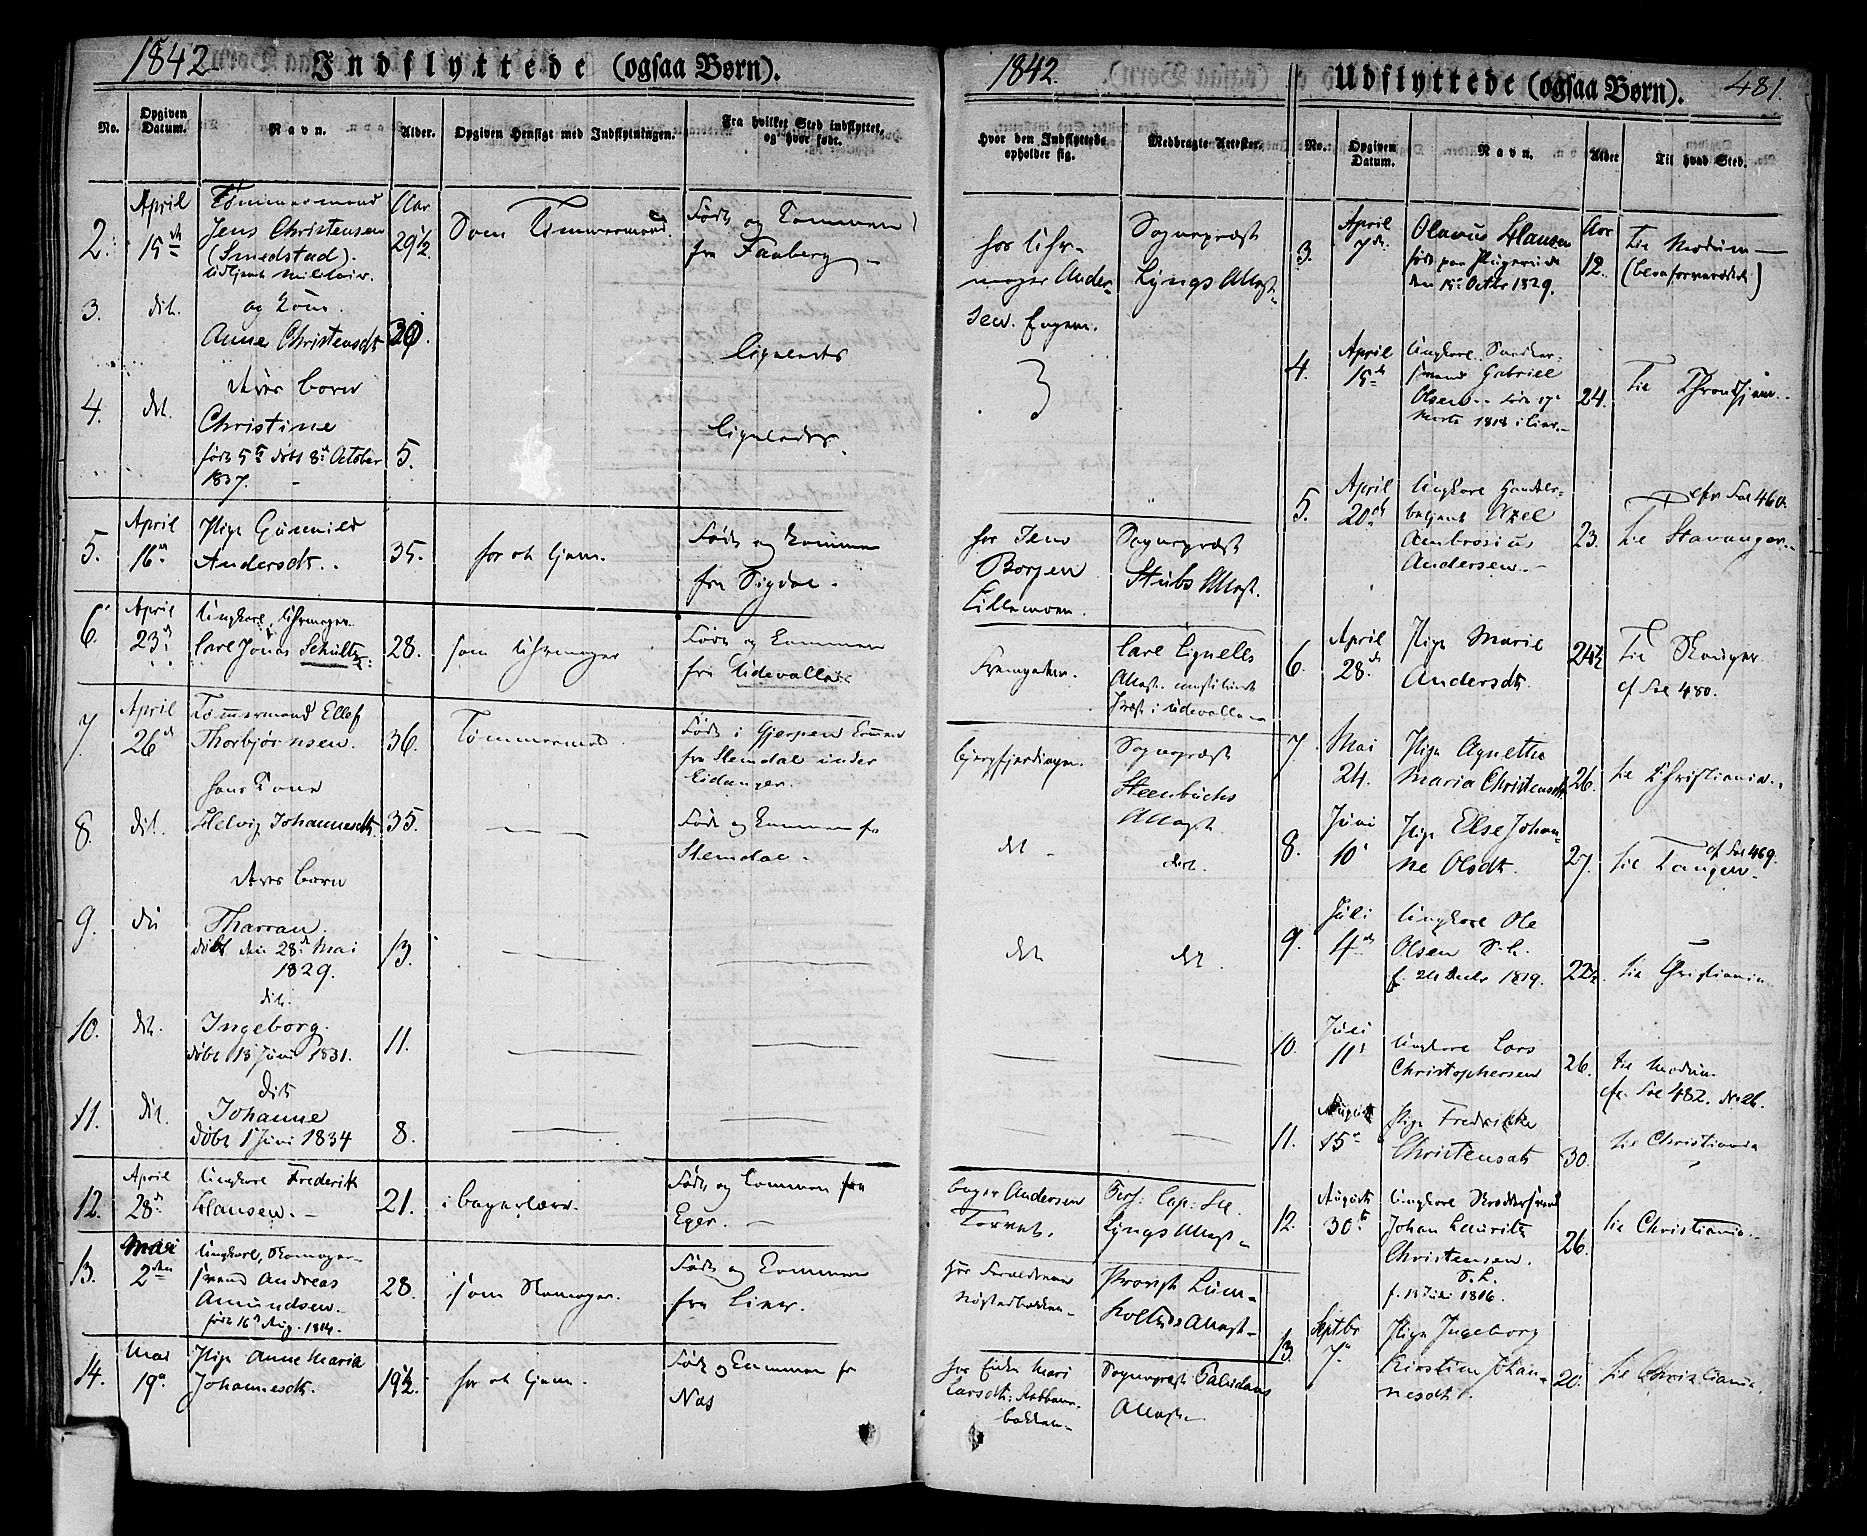 1842
Indflyttede (ogsaa Børn).
No.
Opgiven Datum.
Navn.
Alder.
Opgiven Hensigt med Indflytningen.
Fra hvilket Sted indflyttet, og hvor født.
2.
April
15
Tømmermand
Jens Christensen
(Smedstad).
Aar
29 1/2
Som Tømmermand
Født og kommen
fra Faaberg
3.
dit.
og kone
Anne Christensdt
29.
ligeledes
4.
dit.
deres barn
Christine
født 5 døbt 8 October
1837.
5.
ligeledes
5.
April
16
Pige Gunnild
Andersdt.
35.
for at tjene.
Født og kommen
fra Sigdal.
6.
April
23
Ungkarl, Uhrmager
Carl Jonas Schultz
28.
som Uhrmager
Født og kommen
fra Udevalla
7.
April
26
Tømmermand Ellef
Thorbjørnsen.
36.
Tømmermd.
Født i Gjerpen kommen
fra Slemdal under
Eidanger.
8.
dit.
hans kone
Helvig Johannesdt
35.
Født og kommen fr
Slemdal.
9.
dit
deres barn
Tharran.
døbt den 28 Mai
1829.
13.
10.
dit.
dit.
Ingeborg.
døbt 13 Juni 1831.
11.
11.
dit.
dit
Johanne
døbt 1 Juni 1834
8.
12.
April
28
Ungkarl Frederik
Hansen.
21.
i bagerlære.
Født og kommen fra
Eger.
13.
Mai
2den
Ungkarl, Skomager-
svend Andreas
Amundsen.
født 16 Aug. 1814.
28.
som Skomager.
Født og kommen
fra Lier.
14.
Mai
19
Pige Anne Maria
Johannesdt.
19 1/2.
for at tjene.
Født og kommen fr
Næs
1842.
Hvor den Indflyttede opholder sig.
Medbragte Attester.
hos Uhr-
mager Ander-
sen. Engene.
Sognepræst
Lyngs Attest.
hos Jens
Borgen
Lillemoen.
Sognepræst
Stubs Attest.
Carl Lignells
Attest.
Præst i Udevalla
Sognepræst
Steenbuchs
Attest
dit
dit.
dit
dit.
bager Andersen
Torvet.
Pers: Cap: 
Lyngs Attest
Provst Lum-
holtzes Attest
hos Enke Mari
Larsdt.
bakken
Sognepræst
Attest.
Udflyttede (ogsaa Børn).
481.
No.
Opgiven Datum.
Navn.
Alder
Til hvad Sted.
3.
April
7
Olavus Hansen
den 15 Octbr 1829.
Aar
12.
til Modum
4.
April
15
Ungkarl Snedker-
svend Gabriel
Olsen født 17
Marts 1818 i Lier.
24.
til Throndhjem.
5.
April
20
Ungkarl Handels-
betjent Axel
Ambrosius
Andersen.
23.
cfr Fol 460.
til Stavanger.
6.
April
28
Pige Marie
Andersdt.
24 1/2
til Skouger
cf Fol 480.
7.
Mai
24.
Pige Agnethe
Maria Christensdt
26.
til Christiania.
8.
Juni
10
Pige Else Johan-
ne Olsdt.
27.
cf Fol 469.
til Tangen.
9.
Juli
4
Ungkarl Ole
Olsen
f. 24 Decbr 1819.
22 1/2
til Christiania
10.
Juli
11
Ungkarl Lars
Christophersen
26.
til Modum
cfr Fol 482. No 26.
11.
August
15
Pige Fredrikke
Christensdt
30.
til Christiania
12.
August
30
Ungkarl Skreddersvend
Johan Lauritz
Christensen.
f. 13 Juni 1816.
26.
til Christiania
13.
Septbr
7
Pige Ingeborg
Kirstine Johan-
nesdt.
20.
til Christiania.